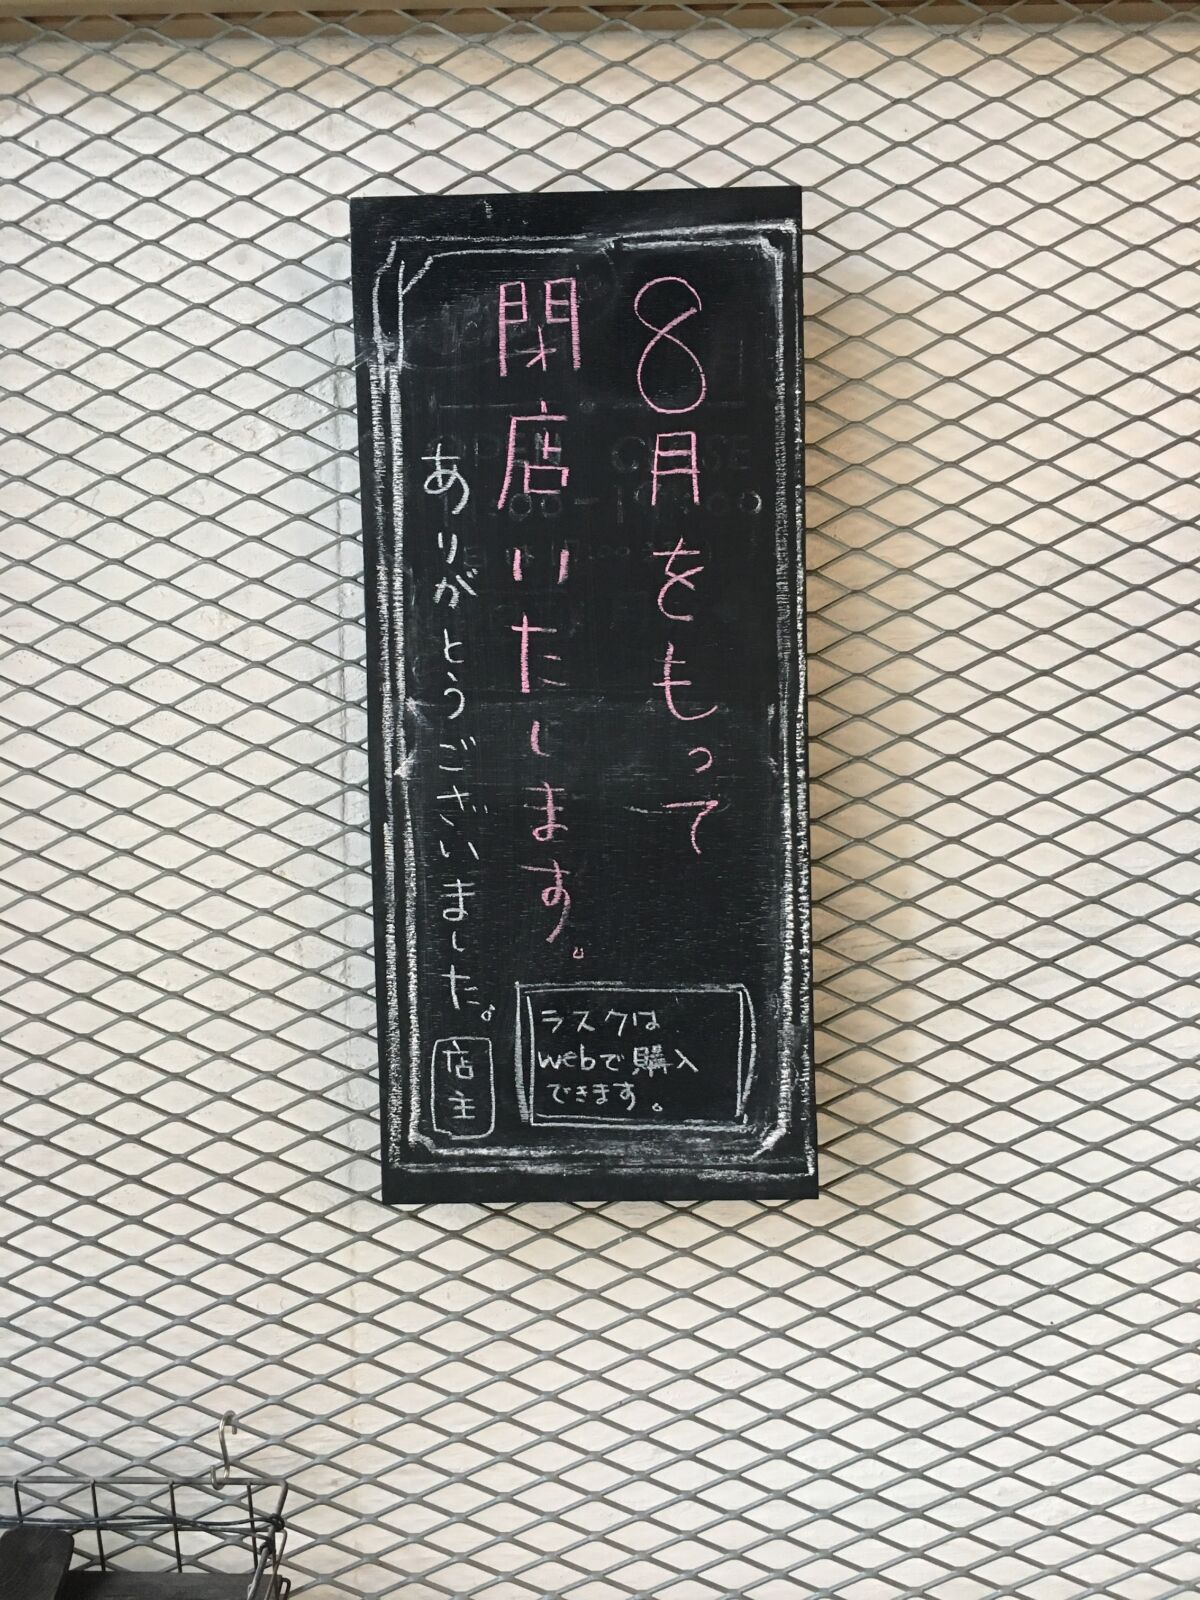 8月をもって
閉店いたします。
ありがとうございました。
店主
ラスクは
webで購入
できます。
OPEN CLOSE